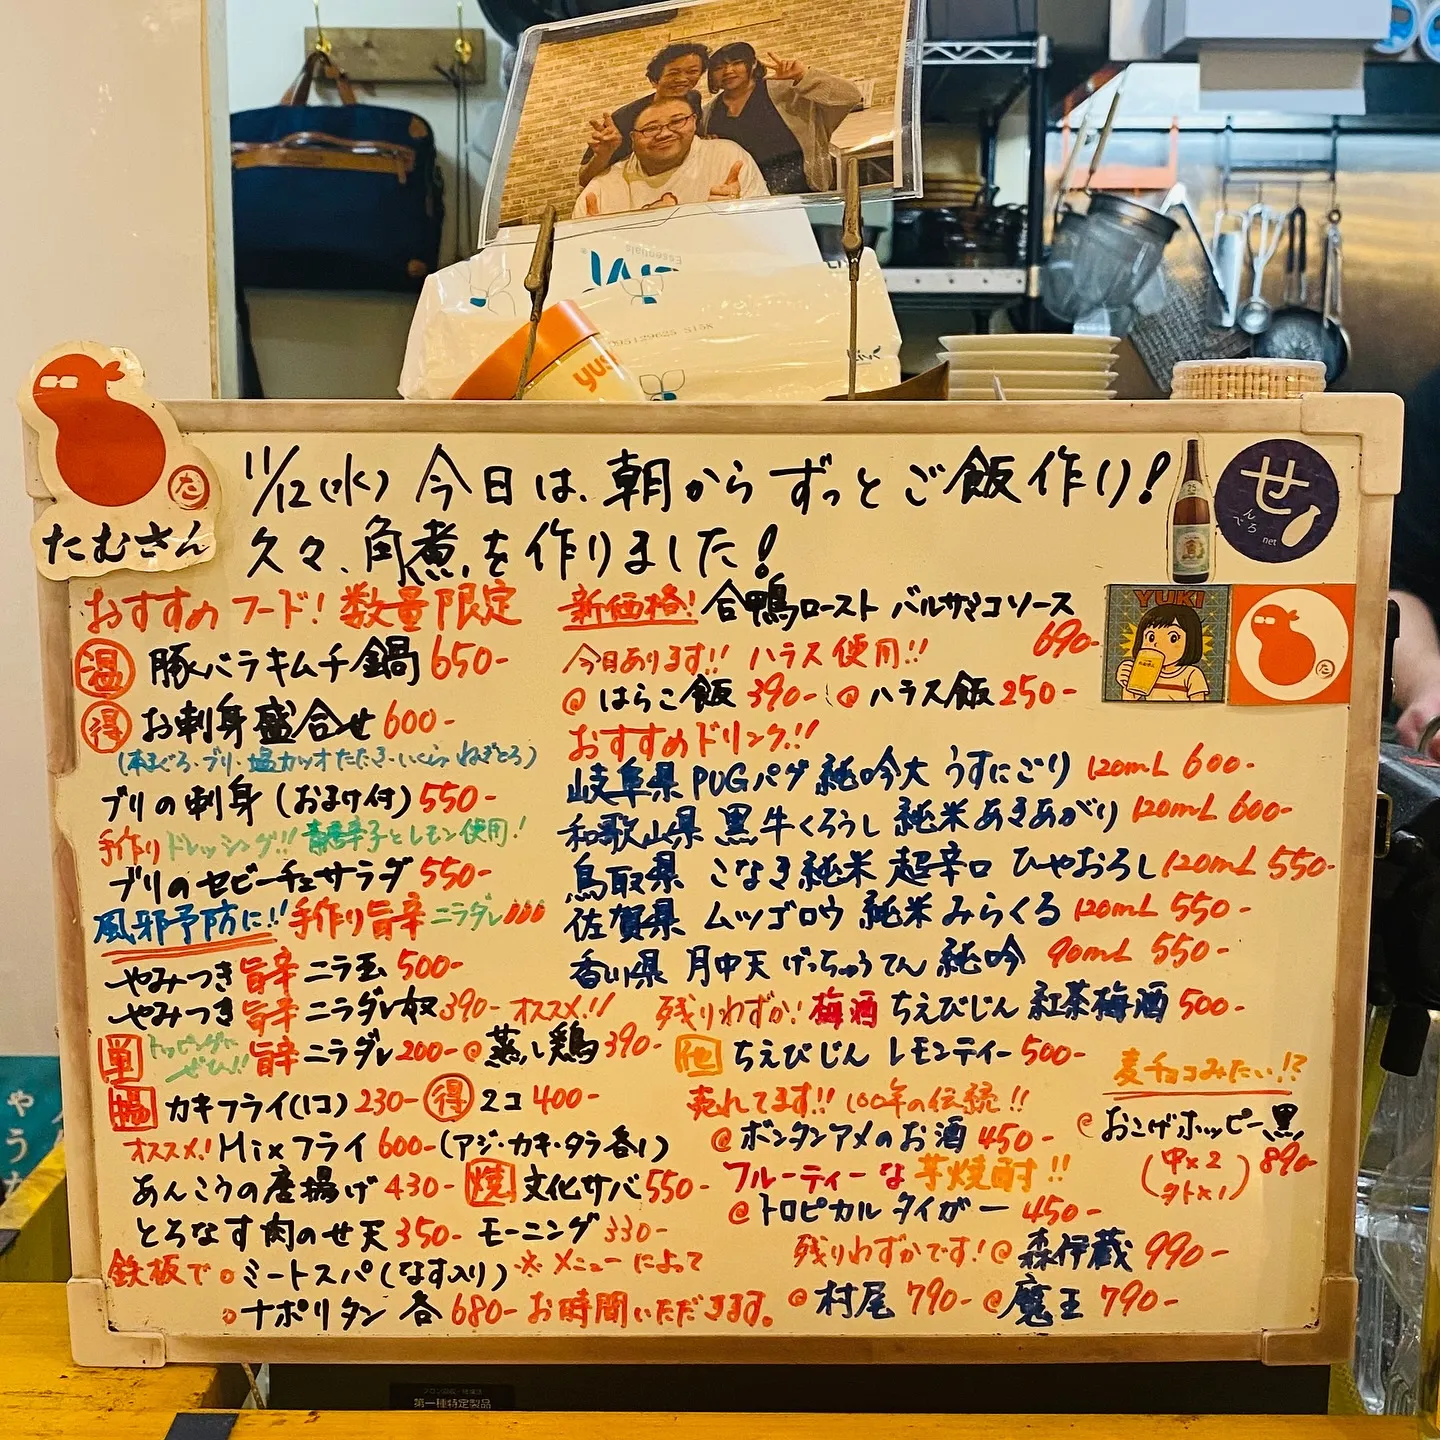 たむさん
た
11/12(水) 今日は、朝からずっとご飯作り!
久々、角煮を作りました!
せ
んでろ
net
YUKI
おすすめフード! 数量限定
温 豚バラキムチ鍋 650-
得 お刺身盛合せ 600-
(本まぐろ・ブリ・塩カツオたたき・いくら・ねぎとろ)
ブリの刺身(おまけ付) 550-
手作りドレッシング!! 青唐辛子とレモン使用!
ブリのセビーチェサラダ 550-
風邪予防に!! 手作り旨辛ニラダレ
やみつき旨辛ニラ玉 500-
やみつき旨辛ニラダレ奴 390- オススメ!!
単 トッピングにぜひ!! 旨辛ニラダレ 200- @蒸し鶏 390-
揚 カキフライ(1コ) 230- 得 2コ 400-
オススメ! Mixフライ 600-(アジ・カキ・タラ各1)
あんこうの唐揚げ 430- 焼 文化サバ 550-
とろなす肉のせ天 350- モーニング 330-
鉄板で ○ミートスパ(なす入り) ※メニューによって
○ナポリタン 各680- お時間いただきます。
新価格! 合鴨ロースト バルサミコソース
690-
今日あります!! ハラス使用!!
@はらこ飯 390- @ハラス飯 250-
おすすめドリンク!!
岐阜県 PUGパグ 純吟大 うすにごり 120mL 600-
和歌山県 黒牛くろうし 純米あきあがり 120mL 600-
鳥取県 こなき純米 超辛口 ひやおろし 120mL 550-
佐賀県 ムツゴロウ 純米 みらくる 120mL 550-
香川県 月中天 げっちゅうてん 純吟 90mL 550-
残りわずか! 梅酒 ちえびじん 紅茶梅酒 500-
他 ちえびじん レモンティー 500-
売れてます!! 100年の伝統!!
@ボンタンアメのお酒 450-
フルーティーな芋焼酎!!
@トロピカルタイガー 450-
残りわずかです! @森伊蔵 990-
@村尾 790- @魔王 790-
麦チョコみたい!?
@おこげホッピー黒
(中×2 外×1) 890-
第一種特定製品